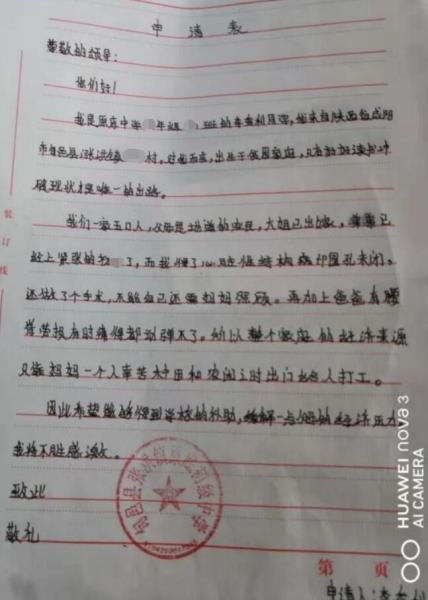 申请表
尊敬的领导：
你们好！
我是原底中学 年级 班的李 ，我来自陕西省咸阳
市旬邑县张洪镇 村。对我而言，出生于贫困家庭，只有好好读书冲
破现状才是唯一的出路。
我们一家五口人，父母是地道的农民，大姐已出嫁， 已
赶上紧张的 了，而我得了心脏 病卵圆孔未闭。
还做了个手术，不能自己还需妈妈照顾。再加上爸爸有腰
劳损有时痛得都动弹不了。所以整个家庭的经济来源
只靠妈妈一个人辛苦种田和农闲之时出门给人打工。
因此希望能够得到学校的补助，缓解一点 的经济压力
我将不胜感激。
致此
敬礼
旬邑县张洪镇原底初级中学
第 页
申请人：李
装订线
HUAWEI nova 3
AI CAMERA